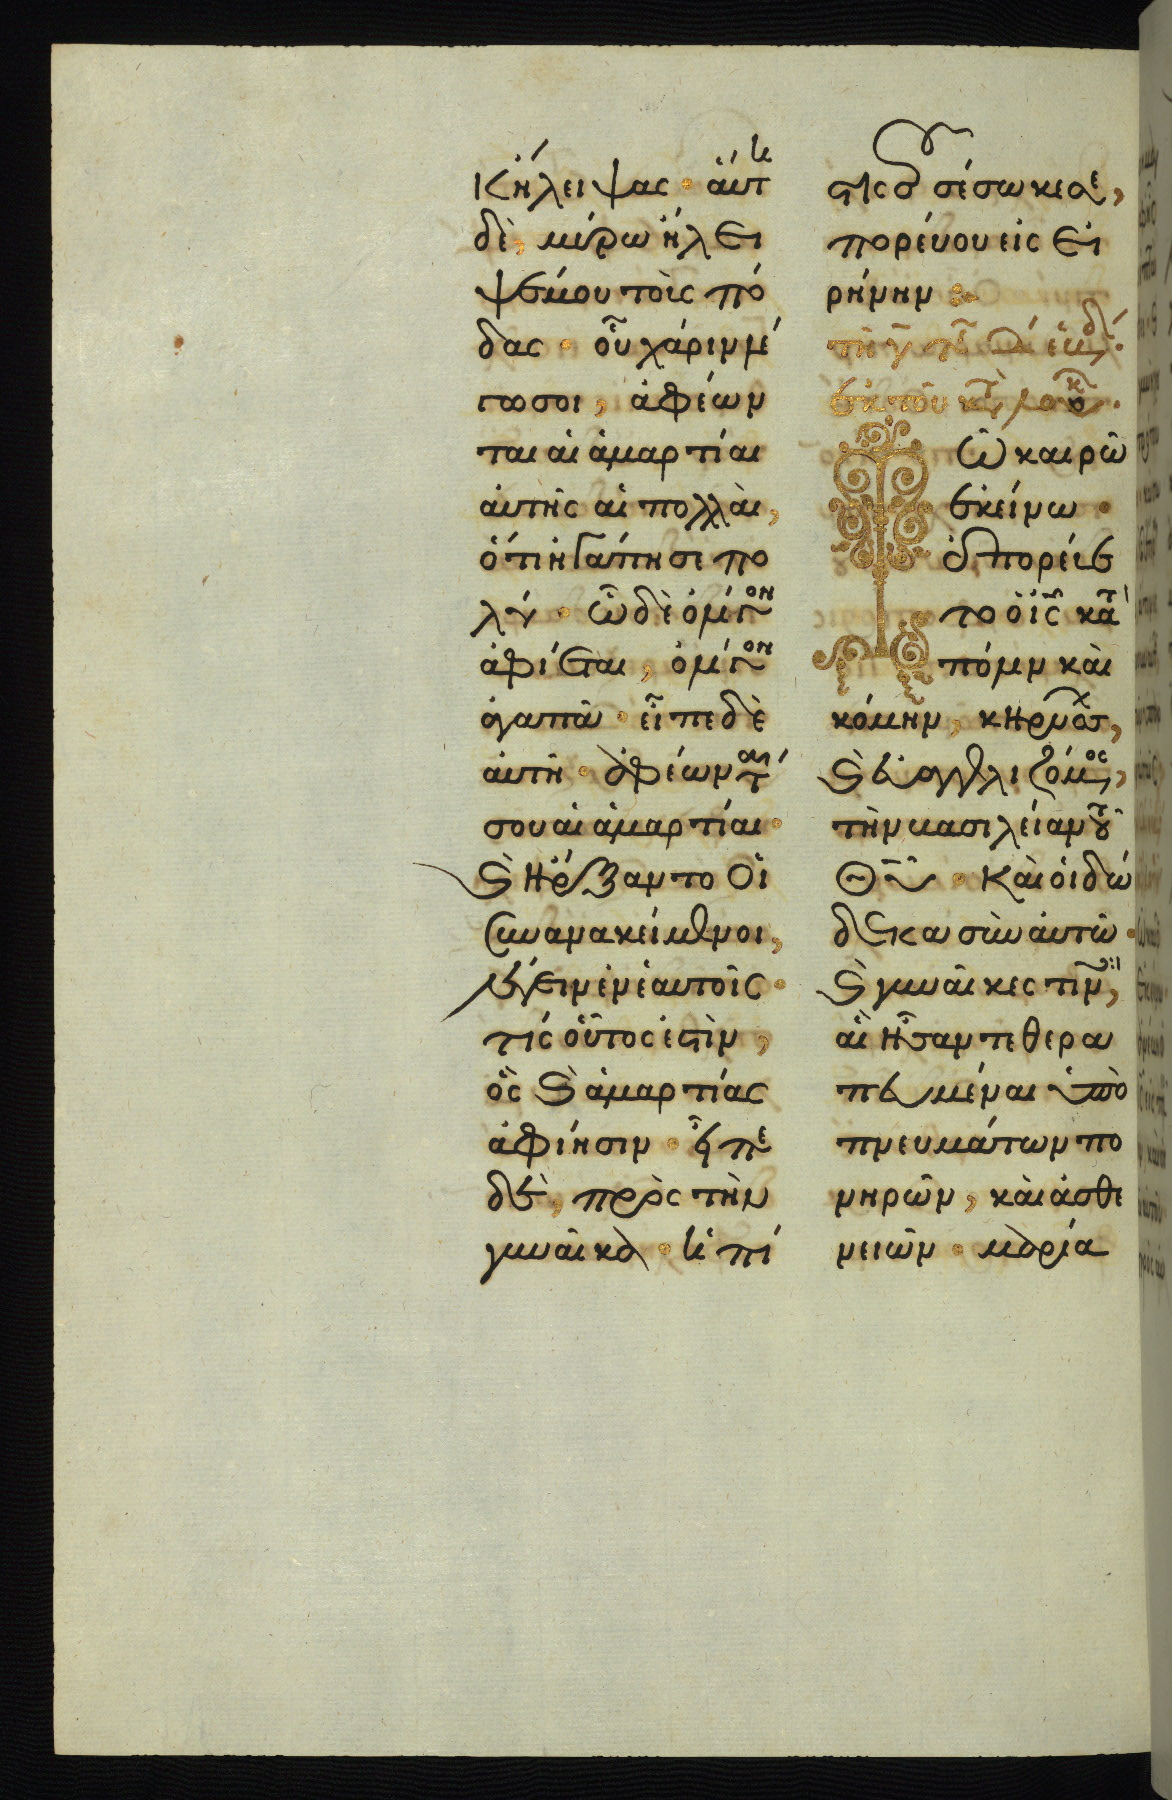 κ ἤλειψας · αὕτ(η)
δὲ, μύρω ἤλει
ψέ μου τοὺς πό
δας · οὗ χάριν λέ
γω σοι, ἀφέων
ται αἱ ἁμαρτίαι
αὐτῆς αἱ πολλαὶ,
ὅτι ἠγάπησε πο
λύ · ὧ δὲ ὀλίγον
ἀφίεται, ὀλίγον
ἀγαπᾶ · εἶπε δὲ
αὐτῆ · ἀφέωνται
σου αἱ ἁμαρτίαι ·
Ϗ ἤρξαντο οἱ
συνανακείμενοι,
λέγειν ἐν ἑαυτοῖς ·
τίς οὗτος ἐστὶν,
ὃς ϗ ἁμαρτίας
ἀφίησιν · εἶπε
δὲ, πρὸς τὴν
γυναῖκα · ἡ πί
στις σου σέσωκέ σε,
πορεύου εἰς εἰ
ρήνην ·
ἐκ τοῦ κατὰ λουκ
ῶ καιρῶ
ἐκείνω ·
ἐπορεύε
το ὁ ις κατὰ
πόλιν καὶ
κώμην, κηρύσσων,
ϗ εὐαγγελιζόμενος,
τὴν βασιλείαν τοῦ
θυ · Καὶ οἱ δώ
δεκα σὺν αὐτῶ ·
ϗ γυναῖκες τινὲς,
αἳ ἦσαν τεθερα
πευμέναι ὑπὸ
πνευμάτων πο
νηρῶν, καὶ ἀσθε
νειῶν · μαρία